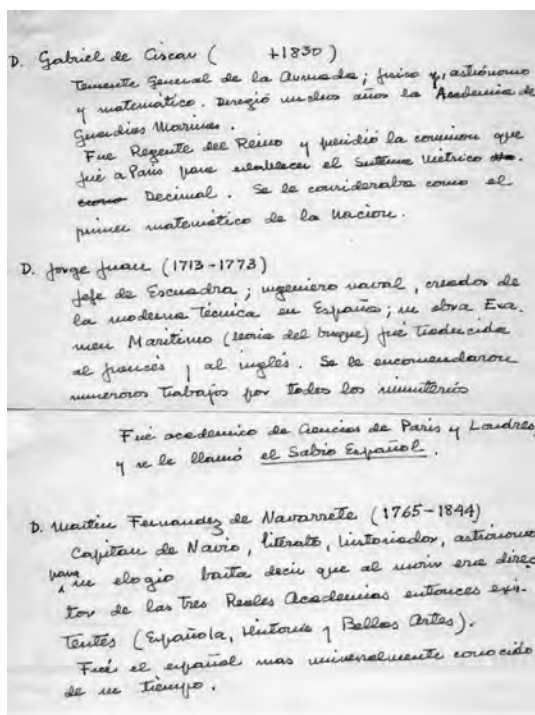 D. Gabriel de Ciscar ( +1830)
Teniente General de la Armada; físico y, astrónomo
y matemático. Dirigió muchos años la Academia de
Guardias Marinas.
Fue Regente del Reino y presidió la comision que
fué a París para establecer el Sistema Métrico
Decimal. Se le consideraba como el
primer matemático de la Nacion.
D. Jorge Juan (1713-1773)
Jefe de Escuadra; ingeniero naval, creador de
la moderna Técnica en España; su obra Exa.
men Maritimo (teoria del buque) fué traducida
al francés y al inglés. Se le encomendaron
numerosos trabajos por todos los ministerios
Fué academico de Ciencias de Paris y Londres,
y se le llamó el Sabio Español.
D. Martín Fernandez de Navarrete (1765-1844)
Capitan de Navío, literato, historiador, astrónomo
para su elogio basta decir que al morir era direc
tor de las tres Reales Academias entonces exis
tentes (Española, Historia y Bellas Artes).
Fué el español mas universalmente conocido
de su tiempo.